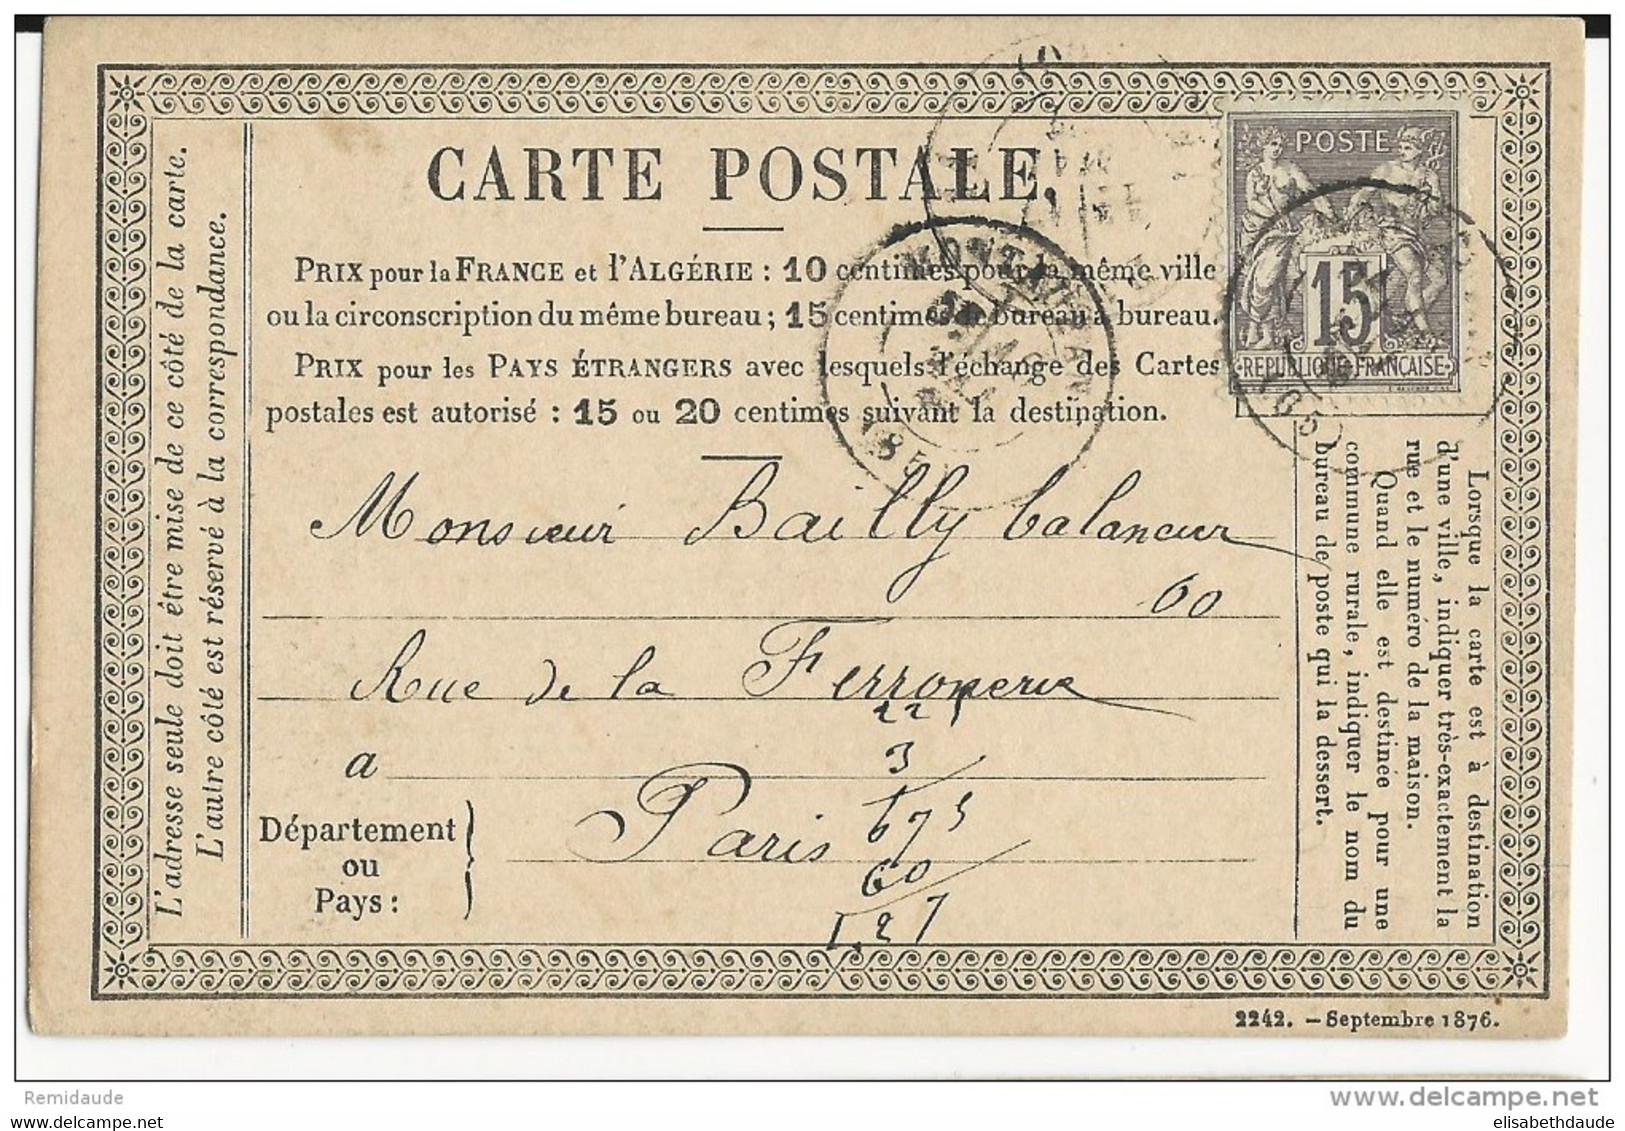 CARTE POSTALE.
PRIX pour la FRANCE et l'ALGÉRIE : 10 centimes pour la même ville
ou la circonscription du même bureau ; 15 centimes de bureau à bureau.
PRIX pour les PAYS ÉTRANGERS avec lesquels l'échange des Cartes
postales est autorisé : 15 ou 20 centimes suivant la destination.
POSTE
15
REPUBLIQUE FRANCAISE
MONTAUBAN
Monsieur Bailly balancier
60
Rue de la Ferronerie
a
Paris
Département
ou
Pays :
3
675
60
L'adresse seule doit être mise de ce côté de la carte.
L'autre côté est réservé à la correspondance.
Lorsque la carte est à destination
d'une ville, indiquer très-exactement la
rue et le numéro de la maison.
Quand elle est destinée pour une
commune rurale, indiquer le nom du
bureau de poste qui la dessert.
2242. — Septembre 1876.
Remidaude
www.delcampe.net
elisabethdaude